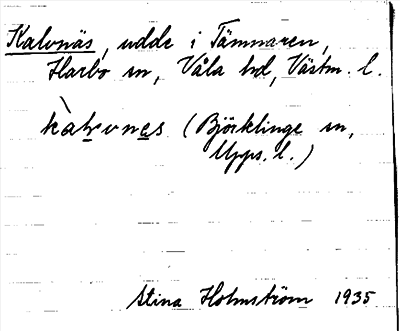 Kalvnäs, udde i Tämnaren,
Harbo sn, Våla hd, Västm. l.
kàlvnes (Björklinge sn,
Upps. l.)
Stina Holmström 1935